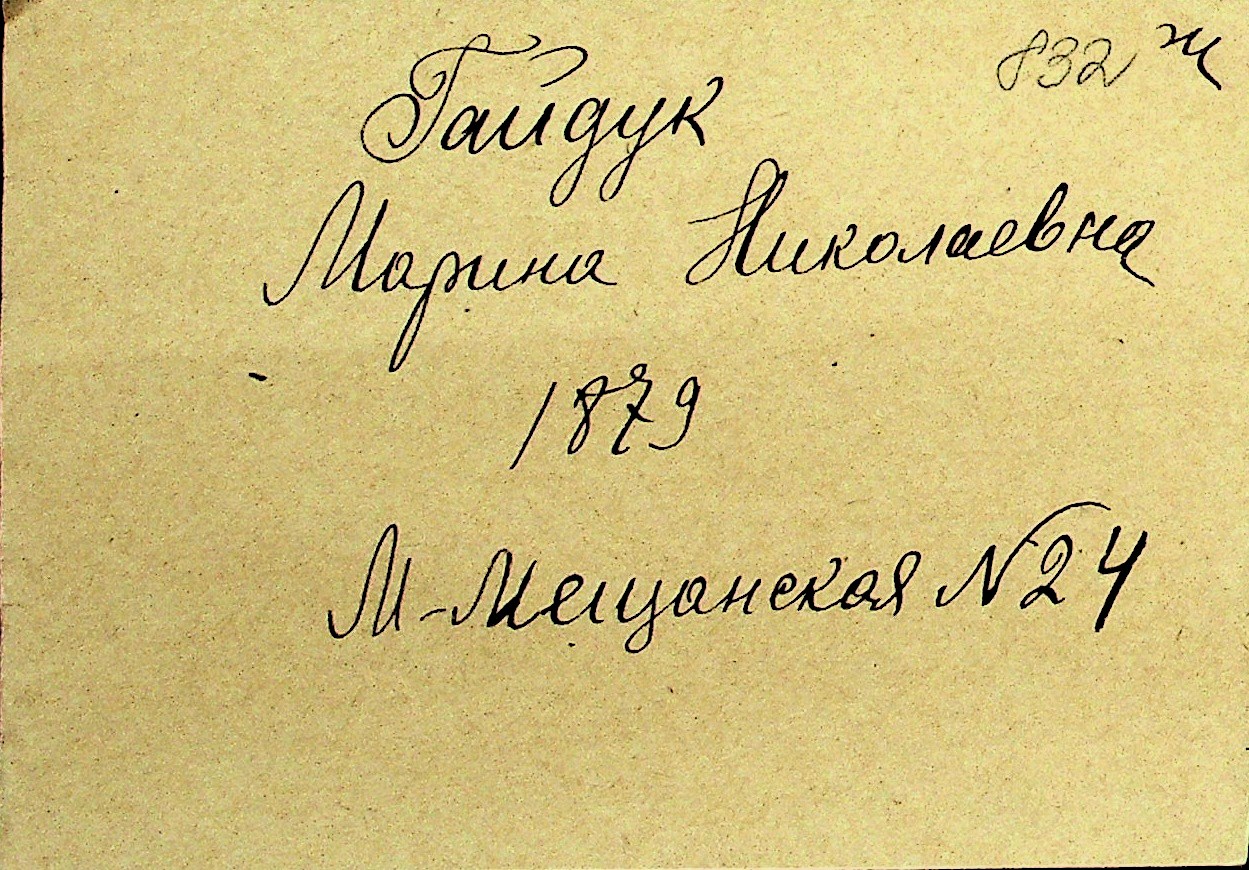 832 ж
Гайдук
Марина Николаевна
1879
М-Мещанская №24